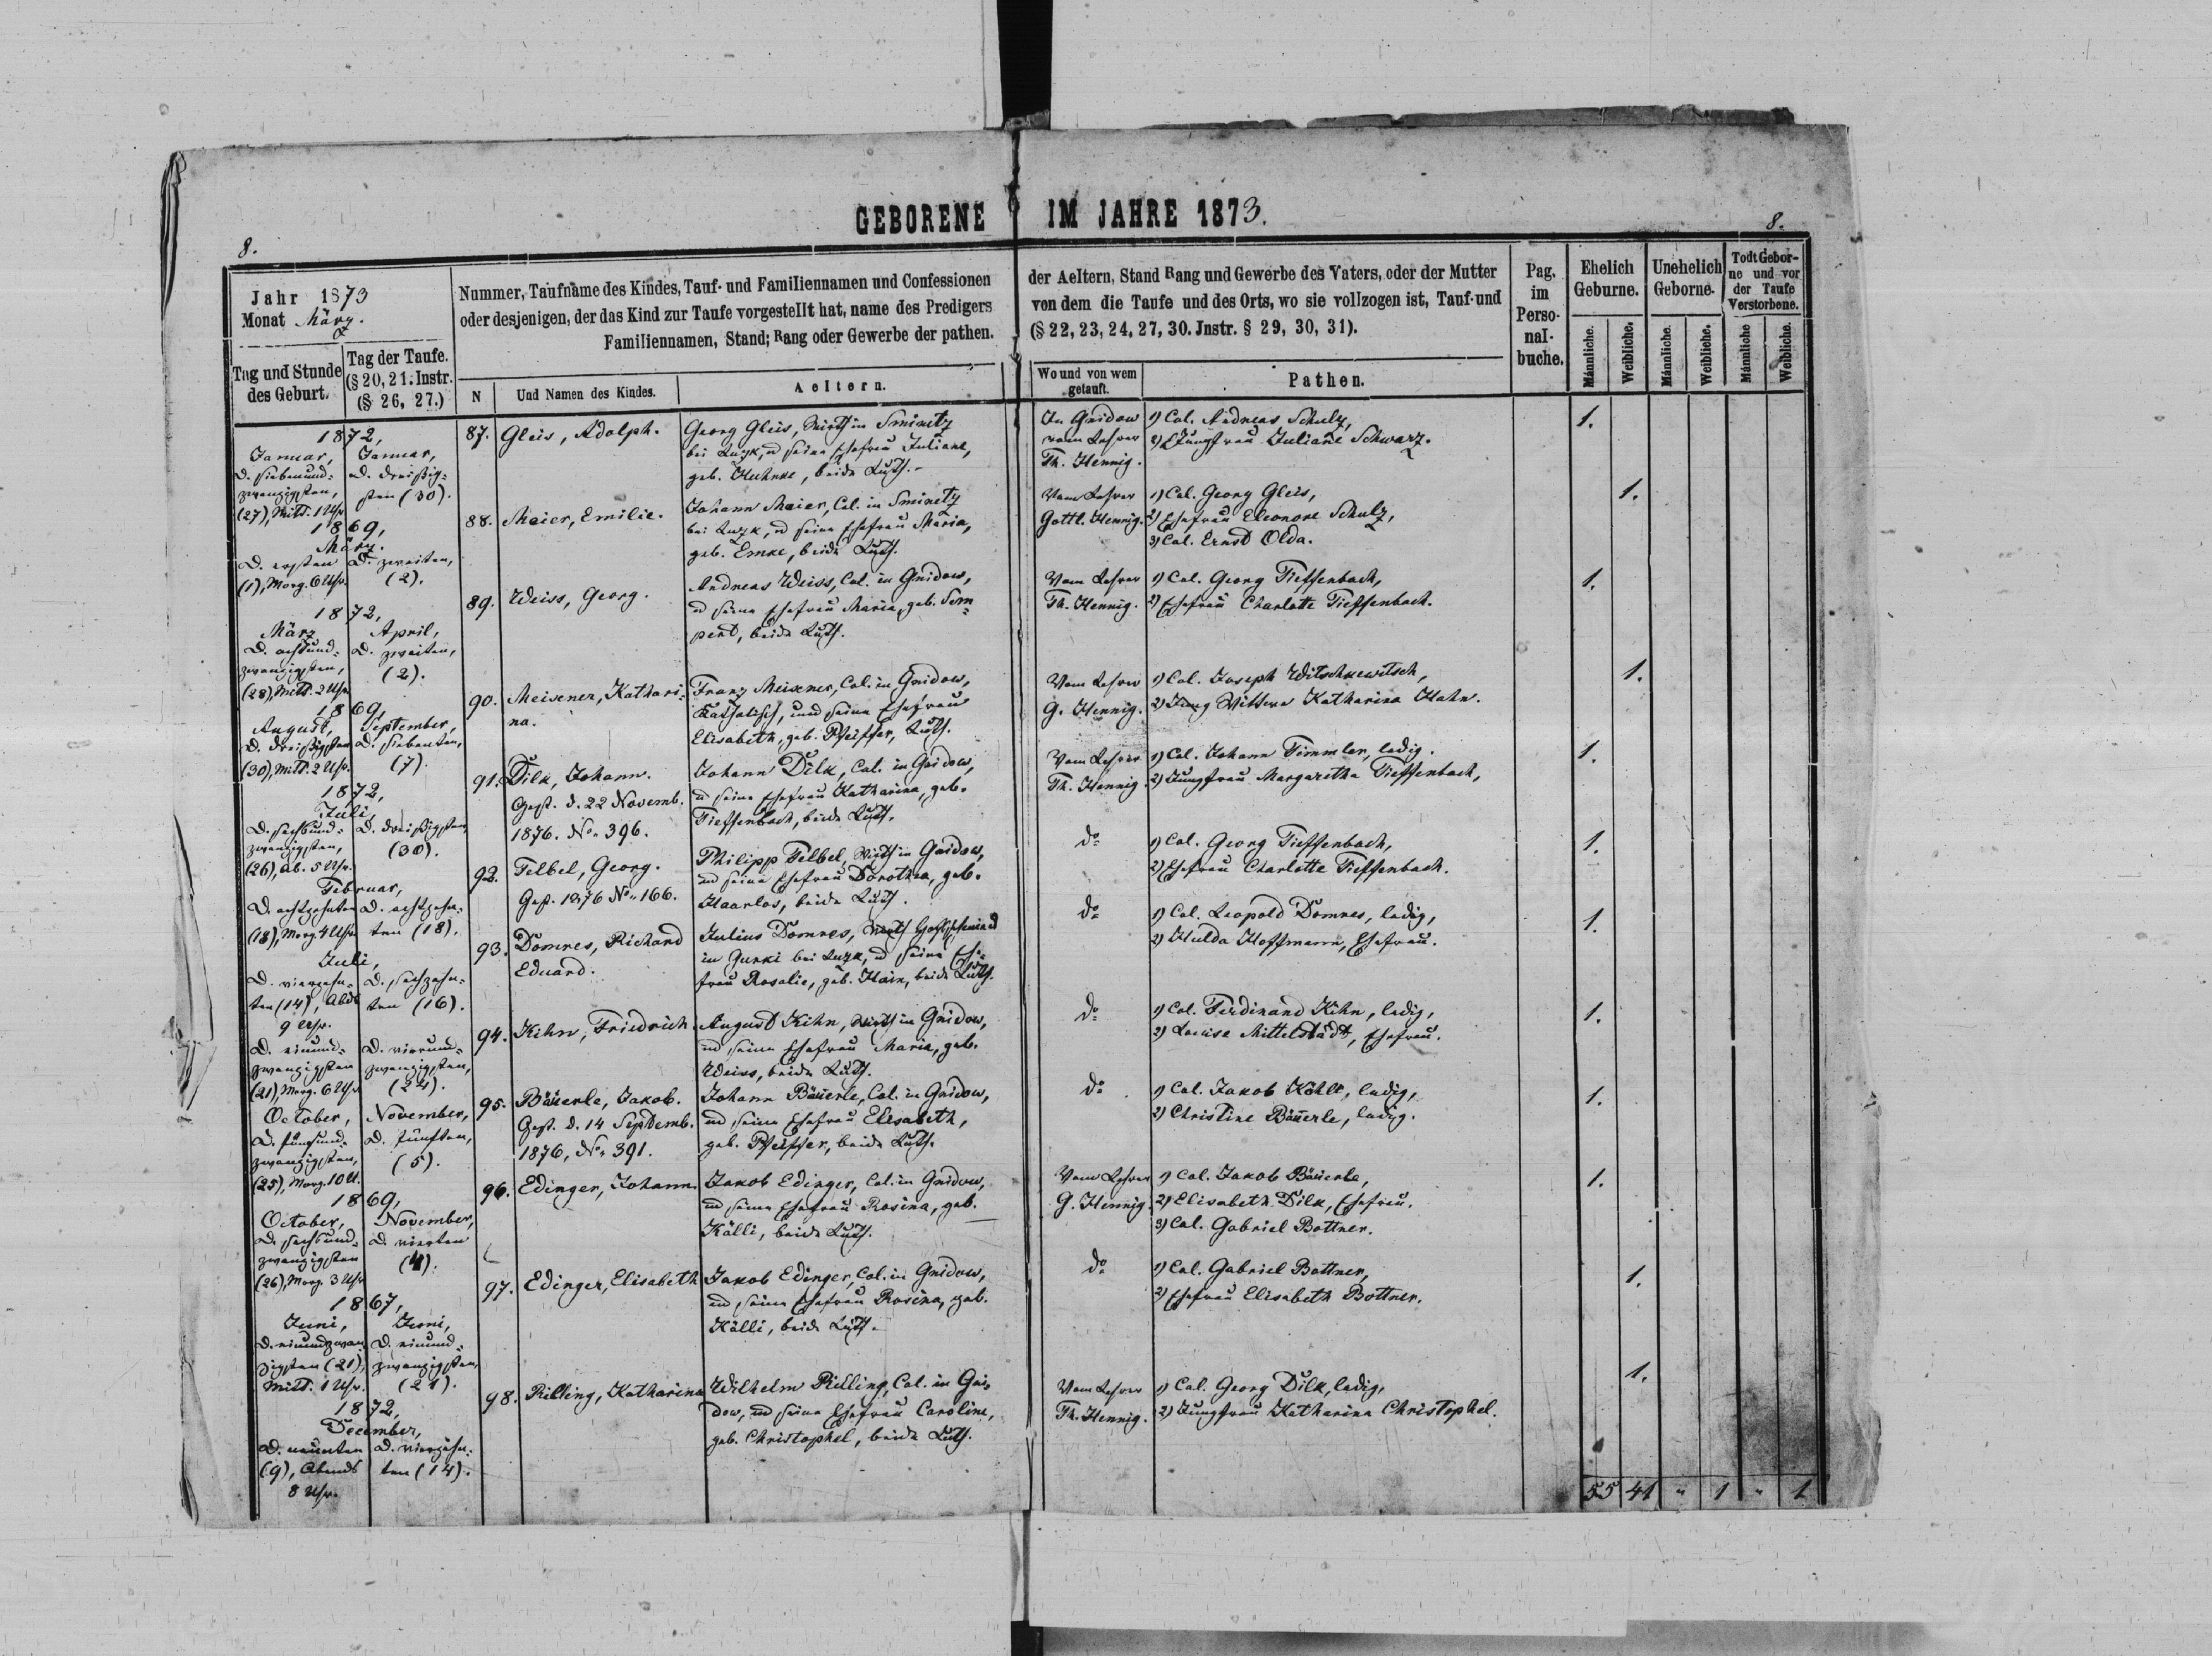 GEBORENE IM JAHRE 1873.
8.
8.
Jahr 1873
Monat März.
Tag und Stunde des Geburt.
Tag der Taufe.
(§ 20, 21. Instr.
(§ 26, 27.)
Nummer, Taufname des Kindes, Tauf- und Familiennamen und Confessionen
oder desjenigen, der das Kind zur Taufe vorgestellt hat, name des Predigers
Familiennamen, Stand; Rang oder Gewerbe der pathen.
N
Und Namen des Kindes.
Aeltern.
der Aeltern, Stand Rang und Gewerbe des Vaters, oder der Mutter
von dem die Taufe und des Orts, wo sie vollzogen ist, Tauf-und
(§ 22, 23, 24, 27, 30. Jnstr. § 29, 30, 31).
Wo und von wem
getauft.
Pathen.
Pag.
im
Perso-
nal-
buche.
Ehelich
Geburne.
Unehelich
Geborne.
Todt Gebor-
ne und vor
der Taufe
Verstorbene.
Männliche.
Weibliche.
Männliche
Weibliche.
Männliche
Weibliche.
1872,
Januar,
D. siebenund-
zwanzigsten,
(27), Mitt. 1 Uhr.
Januar,
D. dreißig-
sten (30).
87.
Gleis, Adolph.
Georg Gleis, Wirth in Sminetz
bei Luzk, u seine Ehefrau Juliane,
geb. Huhnke, beide Luth.
In Gnidow
vom Lehrer
Th. Hennig.
1) Col. Andreas Schulz,
2) Jungfrau Juliane Schwarz.
1.
1869,
März.
D. ersten
(1), Morg. 6 Uhr.
D. zweiten,
(2).
88.
Maier, Emilie.
Johann Maier, Col. in Sminetz
bei Luzk, u seine Ehefrau Maria,
geb. Emke, beide Luth.
Vom Lehrer
Gottl. Hennig.
1) Col. Georg Gleis,
2) Ehefrau Eleonore Schulz,
3) Col. Ernst Olda.
1.
1872,
März
D. achtund-
zwanzigsten,
(28), Mitt. 2 Uhr.
April,
D. zweiten,
(2).
89.
Weiss, Georg.
Andreas Weiss, Col. in Gnidow,
u seine Ehefrau Maria, geb. Sem-
pert, beide Luth.
Vom Lehrer
Th. Hennig.
1) Col. Georg Tieffenbach,
2) Ehefrau Charlotte Tieffenbach.
1.
1869,
August,
D. dreißigsten
(30), Mitt. 2 Uhr.
September,
D. siebenten,
(7).
90.
Meixener, Kathari-
na.
Franz Meixener, Col. in Gnidow,
Katholisch, und seine Ehefrau
Elisabeth, geb. Pfeiffer, Luth.
Vom Lehrer
G. Hennig.
1) Col. Joseph Witschkewitsch,
2) Wittwe Katharina Hahn.
1.
1872,
Juli,
D. sechsund-
zwanzigsten,
(26), Ab. 5 Uhr.
D. dreißigsten,
(30).
91.
Dilk, Johann.
Gest. d. 22 Novemb.
1876. No. 396.
Johann Dilk, Col. in Gnidow,
u seine Ehefrau Katharina, geb.
Tieffenbach, beide Luth.
Vom Lehrer
Th. Hennig.
1) Col. Johann Timmler, ledig.
2) Jungfrau Margaretha Tieffenbach,
1.
Februar,
D. achtzehnten
(18), Morg. 4 Uhr.
D. achtzehn-
ten (18).
92.
Felbel, Georg.
Gest. 1876 No. 166.
Philipp Felbel, Wirth in Gnidow,
und seine Ehefrau Dorothea, geb.
Haarlos, beide Luth.
do
1) Col. Georg Tieffenbach,
2) Ehefrau Charlotte Tieffenbach.
1.
Juli,
D. vierzehn-
ten (14), Abds
9 Uhr.
D. sechzehn-
ten (16).
93.
Domres, Richard
Eduard.
Julius Domres,
in Gurki bei Luzk, u seine Ehe-
frau Rosalie, geb. Hain, beide Luth.
do
1) Col. Leopold Domres, ledig,
2) Hulda Hoffmann, Ehefrau.
1.
D. einund-
zwanzigsten
(21), Morg. 6 Uhr.
D. vierund-
zwanzigsten,
(24).
94.
Kihn, Friedrich.
August Kihn, Wirth in Gnidow,
und seine Ehefrau Maria, geb.
Weiss, beide Luth.
do
1) Col. Ferdinand Kihn, ledig,
2) Louise Mittelstädt, Ehefrau.
1.
October,
D. fünfund-
zwanzigsten,
(25), Morg. 10 U.
November,
D. fünften,
(5).
95.
Bäuerle, Jakob.
Gest. d. 14 Septemb.
1876, No. 391.
Johann Bäuerle, Col. in Gnidow,
und seine Ehefrau Elisabeth,
geb. Pfeiffer, beide Luth.
do
1) Col. Jakob Köhle, ledig,
2) Christine Bäuerle, ledig.
1.
1869,
October,
D. sechsund-
zwanzigsten
(26), Morg. 3 Uhr
November,
D. vierten
(4).
96.
Edinger, Johann.
Jakob Edinger, Col. in Gnidow,
und seine Ehefrau Rosina, geb.
Källi, beide Luth.
Vom Lehrer
G. Hennig.
1) Col. Jakob Bäuerle,
2) Elisabeth Dilk, Ehefrau.
3) Col. Gabriel Bottner.
1.
1867,
Juni,
D. einundzwan-
zigsten (21),
Mitt. 1 Uhr.
Juni,
D. einund-
zwanzigsten,
(21).
97.
Edinger, Elisabeth
Jakob Edinger, Col. in Gnidow,
und seine Ehefrau Rosina, geb.
Källi, beide Luth.
do
1) Col. Gabriel Bottner,
2) Ehefrau Elisabeth Bottner.
1.
1872,
December,
D. neunten
(9), Abends
8 Uhr.
D. vierzehn-
ten (14).
98.
Rilling, Katharina
Wilhelm Rilling, Col. in Gni-
dow, und seine Ehefrau Caroline,
geb. Christophel, beide Luth.
Vom Lehrer
Th. Hennig.
1) Col. Georg Dilk, ledig,
2) Jungfrau Katharina Christophel.
1.
55 41 " 1 " 1